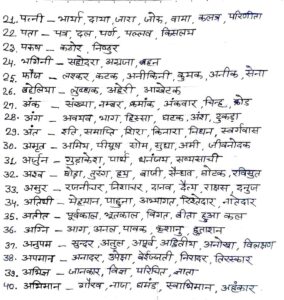 21. पत्नी – भार्या, दारा, जाया, जोरू, वामा, कलत्र, परिणीता
22. पत्ता – पत्र, दल, पर्ण, पल्लव, किसलय
23. परुष – कठोर, निष्ठुर
24. भगिनी – सहोदरा, अग्रजा, बहन
25. फौज – लश्कर, कटक, अनीकिनी, कुमक, अनीक, सेना
26. बहेलिया – लुब्धक, अहेरी, आखेटक
27. अंक – संख्या, नम्बर, क्रमांक, अंकवार, चिन्ह, क्रोड
28. अंग – अवयव, भाग, हिस्सा, घटक, अंश, टुकड़ा
29. अंत – इति, समाप्ति, सिरा, किनारा, निधन, स्वर्गवास
30. अमृत – अमिय, पीयूष, सोम, सुधा, अमी, जीवनोदक
31. अर्जुन – गुडाकेश, पार्थ, धनंजय, सव्यसाची
32. अश्व – घोड़ा, तुरंग, हय, बाजी, सैन्धव, घोटक, रविसुत
33. असुर – रजनीचर, निशाचर, दानव, दैत्य, राक्षस, दनुज
34. अतिथी – मेहमान, पाहुना, अभ्यागत, रिश्तेदार, नातेदार
35. अतीत – पूर्वकाल, भूतकाल, विगत, बीता हुआ कल
36. अग्नि – आग, अनल, पावक, कृशानु, हुताशन
37. अनुपम – सुन्दर, अतुल, अपूर्व, अद्वितीय, अनोखा, विलक्षण
38. अपमान – अनादर, उपेक्षा, बेइज्जती, निरादर, तिरस्कार
39. अभिज्ञ – जानकार, विज्ञ, परिचित, ज्ञाता
40. अभिमान – गौरव, नाज, घमंड, स्वाभिमान, अहंकार